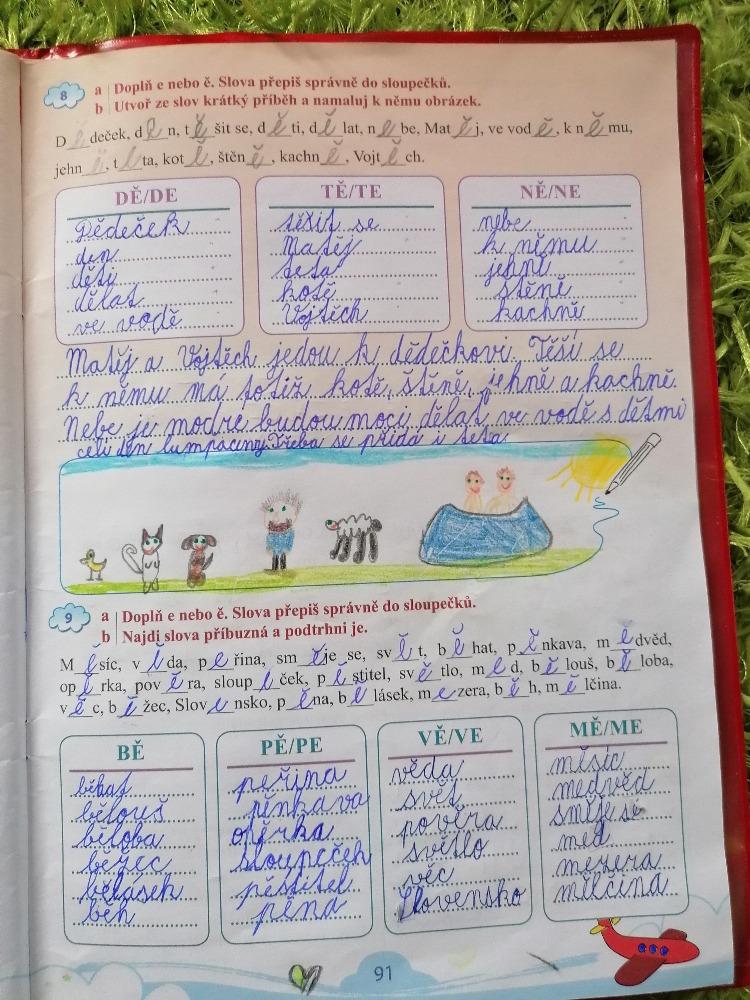 8 a Doplň e nebo ě. Slova přepiš správně do sloupečků.
b Utvoř ze slov krátký příběh a namaluj k němu obrázek.
Dědeček, den, těšit se, děti, dělat, nebe, Matěj, ve vodě, k němu,
jehně, teta, kotě, štěně, kachně, Vojtěch.
DĚ/DE TĚ/TE NĚ/NE
Dědeček těšit se nebe
den Matěj k němu
děti teta jehně
dělat kotě štěně
ve vodě Vojtěch kachně
Matěj a Vojtěch jedou k dědečkovi. Těší se
k němu má totiž kotě, štěně, jehně a kachně.
Nebe je modré budou moci dělat ve vodě s dětmi
celí den lumpačiny. Třeba se přidá i teta
9 a Doplň e nebo ě. Slova přepiš správně do sloupečků.
b Najdi slova příbuzná a podtrhni je.
Měsíc, věda, peřina, směje se, svět, běhat, pěnkava, medvěd,
opěrka, pověra, sloupeček, pěstitel, světlo, med, bělouš, běloba,
věc, běžec, Slovensko, pěna, bělásek, mezera, běh, mělčina.
BĚ PĚ/PE VĚ/VE MĚ/ME
běhat peřina věda měsíc
bělouš pěnkava svět medvěd
běloba opěrka pověra směje se
běžec sloupeček světlo med
bělásek pěstitel věc mezera
běh pěna Slovensko mělčina
91